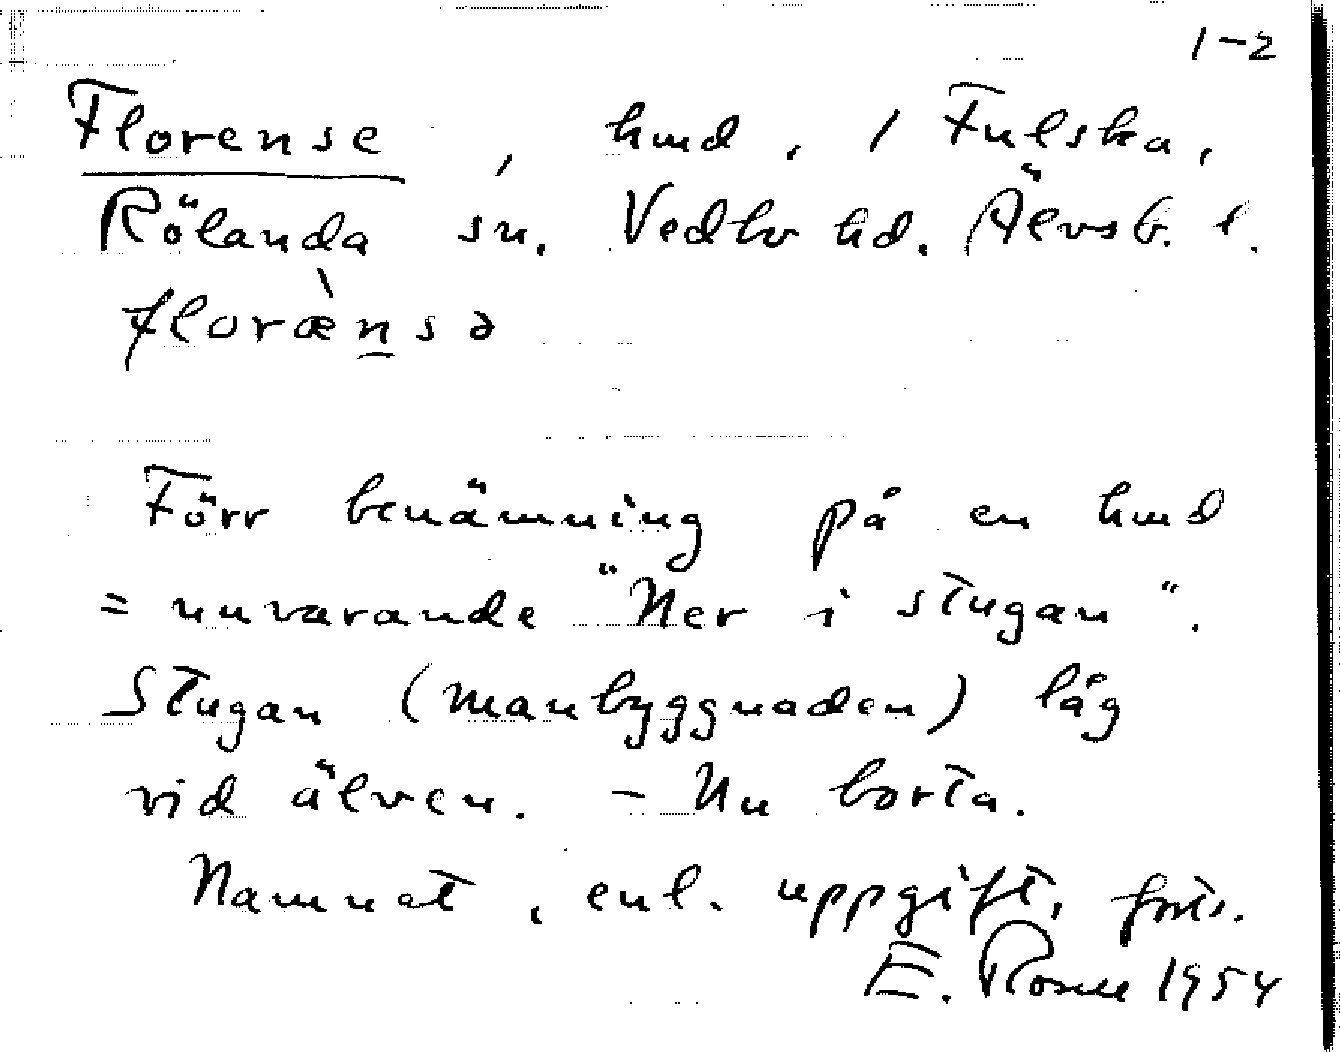 1-2
Florense, hmd, / Fulska,
Rölanda sn. Vedbo hd. Älvsb. l.
floræ̀ns ə
Förr benämning på en hmd
= nuvarande "Ner i stugan".
Stugan (manbyggnaden) låg
vid älven. - Nu borta.
Namnet, enl. uppgift, forts.
E. Rosell 1954